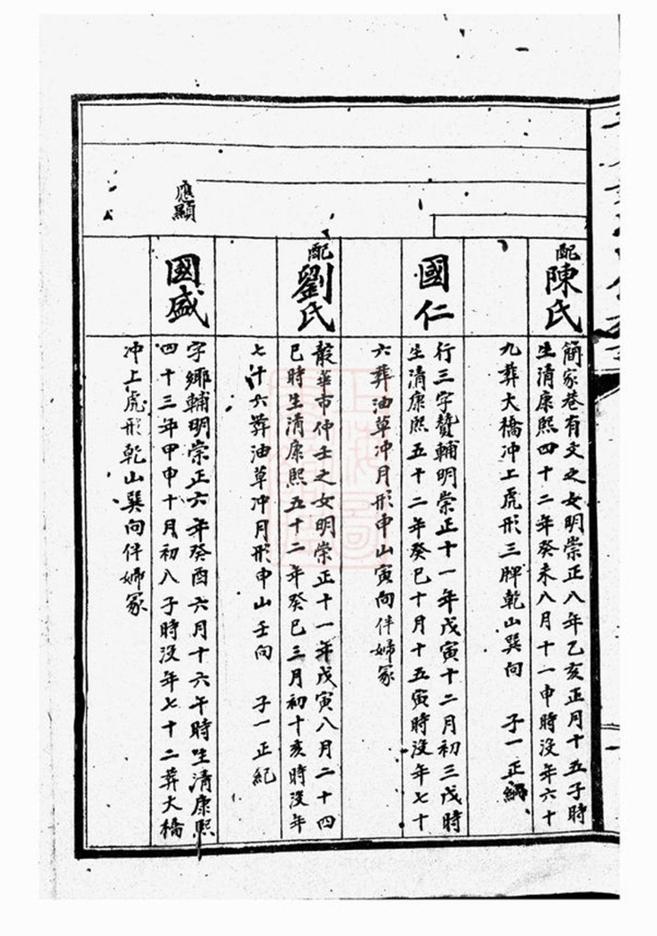 配陳氏
簡家巷有文之女明崇正八年乙亥正月十五子時
生清康熙四十二年癸未八月十一申時没年六十
九葬大橋冲上虎形三脾乾山巽向 子一正綱
國仁
行三字贊輔明崇正十一年戊寅十二月初三戌時
生清康熙五十二年癸巳十月十五寅時没年七十
六葬油草冲月形申山寅向伴婦冢
配劉氏
市仲士之女明崇正十一年戊寅八月二十四
巳時生清康熙五十二年癸巳三月初十亥時没年
七十六葬油草冲月形申山壬向 子一正紀
應顯
國盛
字鄉輔明崇正六年癸酉六月十六午時生清康熙
四十三年甲申十月初八子時没年七十二葬大橋
冲上虎形乾山巽向伴婦冢